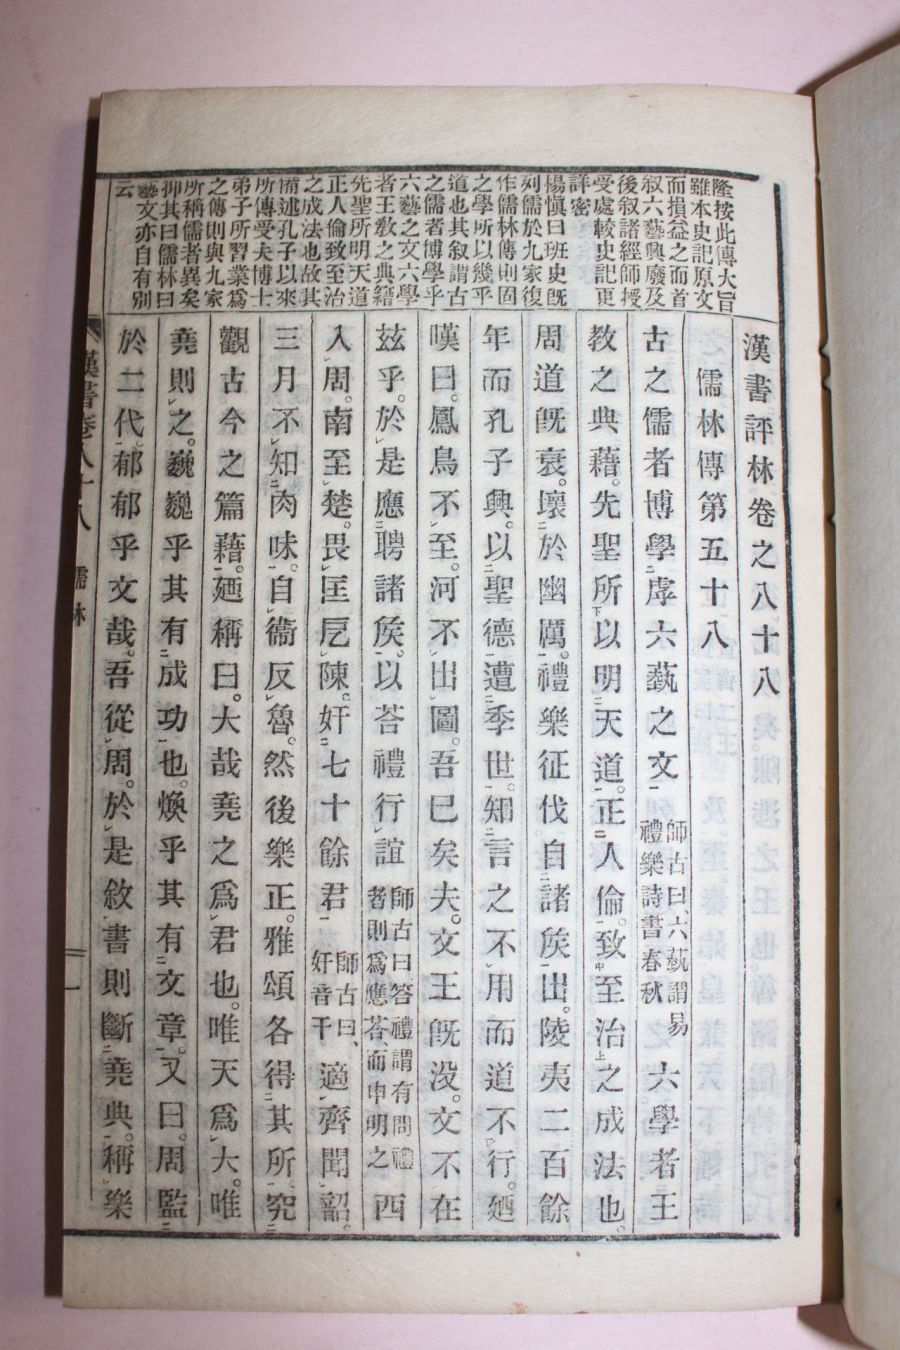 隆按此傳大旨
雖本史記原文
而損益之而首
叙六藝興廢及
後叙諸經師授
受處較史記更
詳密
楊愼曰班史旣
列儒於九家復
作儒林傳則固
之學所以幾乎
道也其叙謂古
之儒者博學乎
六藝之文六學
者王敎之典籍
先聖所明天道
正人倫致至治
之成法也故其
備述孔子以來
所傳受夫博士
弟子所習業爲
之傳則與九家
所稱儒者異矣
抑其曰儒林曰
藝文亦自有別
云
漢書評林卷之八十八
儒林傳第五十八
古之儒者博學虖六藝之文師古曰、六藝謂易禮樂詩書春秋六學者王
敎之典藉。先聖所以明天道。正人倫。致至治之成法也。
周道旣衰。壞於幽厲。禮樂征伐自諸矦出。陵夷二百餘
年而孔子興。以聖德遭季世。知言之不用而道不行。廼
嘆曰。鳳鳥不至。河不出圖。吾已矣夫。文王旣沒。文不在
茲乎。於是應聘諸矦。以荅禮行誼師古曰答禮謂有問禮者則爲應荅、而申明之西
入周。南至楚。畏匡戹陳。奸七十餘君師古曰、奸音干適齊聞韶。
三月不知肉味。自衞反魯。然後樂正。雅頌各得其所。究
觀古今之篇藉。廼稱曰。大哉堯之爲君也。唯天爲大。唯
堯則之。巍巍乎其有成功也。煥乎其有文章。又曰。周監
於二代。郁郁乎文哉。吾從周。於是敘書則斷堯典。稱樂
漢書卷八十八 儒林 一